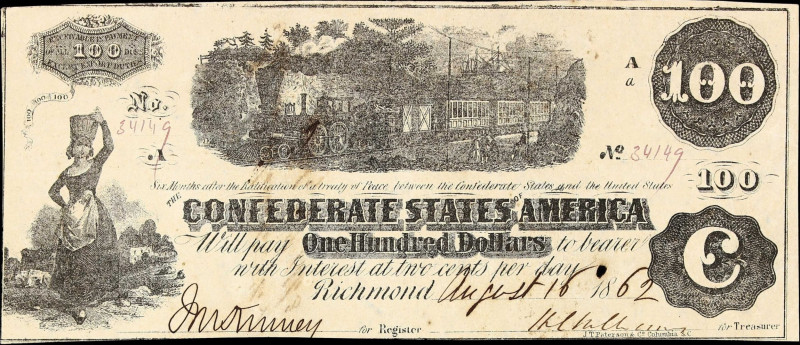 RECEIVABLE IN PAYMENT
OF ALL 100 DUES
EXCEPT EXPORT DUTIES
100 100 100
No. 34149
A
A
a
100
No. 34149
100
Six Months after the Ratification of a treaty of Peace between the Confederate States and the United States
THE CONFEDERATE STATES OF AMERICA
Will pay One Hundred Dollars to bearer
with Interest at two cents per day
Richmond August 16 1862
C
for Register
for Treasurer
J.T. Paterson & Co. Columbia S.C.